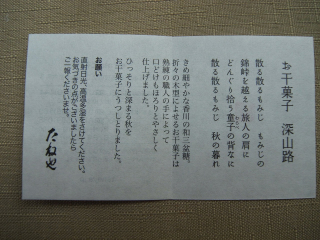 お干菓子　深山路
散る散るもみじ　もみじの
錦峠を越える旅人の肩に
どんぐり拾う童子の背なに
散る散るもみじ　秋の暮れ
きめ細やかな香川の和三盆糖。
折々の木型によせるお干菓子は
熟練の職人の手によって
口どけもほろりとやさしく
仕上げました。
ひっそりと深まる秋を
お干菓子にうつしとりました。
お願い
直射日光、高温多湿をさけてください。
お気づきの点がございましたら
ご一報くださいませ。
たねや